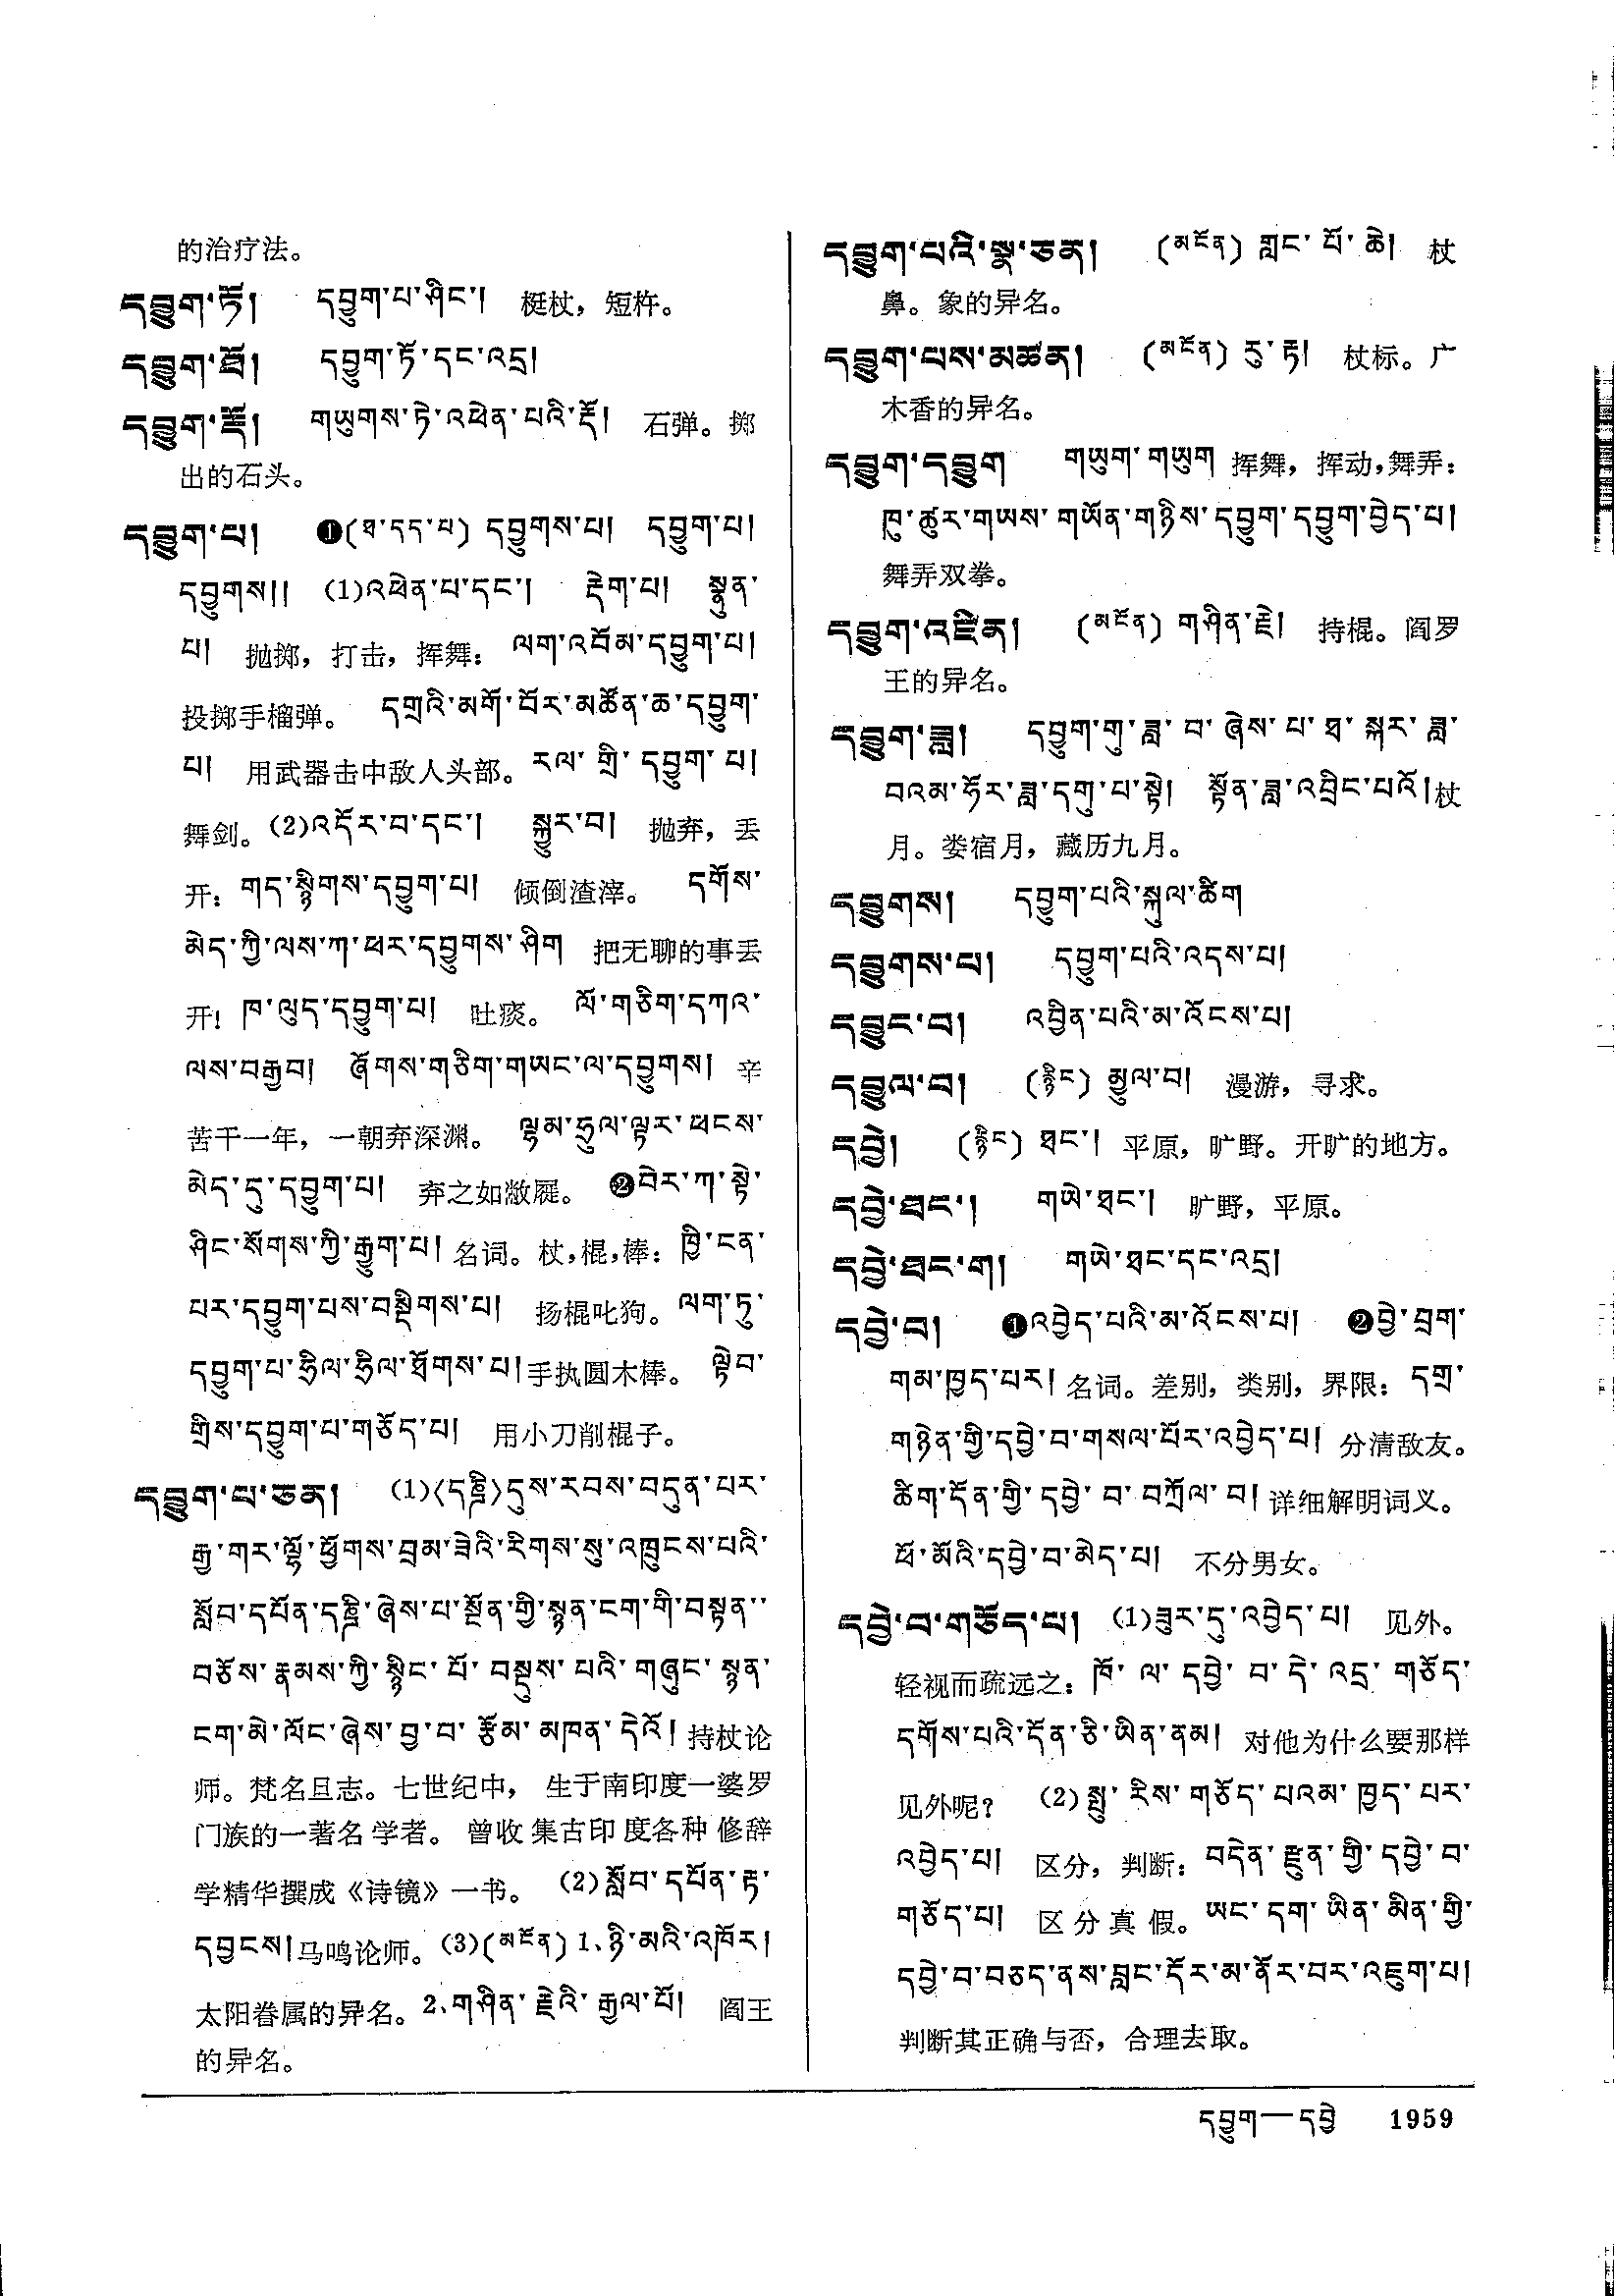 的治疗法。
དབྱུག་ཏོ། དབྱུག་པ་ཤིང་། 梃杖，短杵。
དབྱུག་ཐོ། དབྱུག་ཏོ་དང་འདྲ།
དབྱུག་རྡོ། གཡུགས་ཏེ་འཕེན་པའི་རྡོ། 石弹。掷
出的石头。
དབྱུག་པ། ❶(ཐ་དད་པ) དབྱུགས་པ། དབྱུག་པ།
དབྱུགས།། (1)འཕེན་པ་དང་། རྡེག་པ། སྣུན་
པ། 抛掷，打击，挥舞：ལག་འབོམ་དབྱུག་པ།
投掷手榴弹。 དགྲའི་མགོ་བོར་མཚོན་ཆ་དབྱུག་
པ། 用武器击中敌人头部。རལ་གྲི་དབྱུག་པ།
舞剑。(2)འདོར་བ་དང་། སྐྱུར་བ། 抛弃，丢
开：གད་སྙིགས་དབྱུག་པ། 倾倒渣滓。 དགོས་
མེད་ཀྱི་ལས་ཀ་ཕར་དབྱུགས་ཤིག 把无聊的事丢
开！ཁ་ལུད་དབྱུག་པ། 吐痰。 ལོ་གཅིག་དཀའ་
ལས་བརྒྱབ། ཞོགས་གཅིག་གཡང་ལ་དབྱུགས། 辛
苦干一年，一朝弃深渊。 ལྷམ་ཧྲུལ་ལྟར་ཕངས་
མེད་དུ་དབྱུག་པ། 弃之如敝屣。 ❷བེར་ཀ་སྟེ་
ཤིང་སོགས་ཀྱི་རྒྱུག་པ། 名词。杖，棍，棒：ཁྱི་ངན་
པར་དབྱུག་པས་བསྡིགས་པ། 扬棍叱狗。ལག་ཏུ་
དབྱུག་པ་ཧྲིལ་ཧྲིལ་ཐོགས་པ། 手执圆木棒。 ལྟེབ་
གྲིས་དབྱུག་པ་གཅོད་པ། 用小刀削棍子。
དབྱུག་པ་ཅན། (1)〈དཎྜི〉དུས་རབས་བདུན་པར་
རྒྱ་གར་ལྷོ་ཕྱོགས་བྲམ་ཟེའི་རིགས་སུ་འཁྲུངས་པའི་
སློབ་དཔོན་དཎྜི་ཞེས་པ་སྔོན་གྱི་སྙན་ངག་གི་བསྟན་་
བཅོས་རྣམས་ཀྱི་སྙིང་པོ་བསྡུས་པའི་གཞུང་སྙན་
ངག་མེ་ལོང་ཞེས་བྱ་བ་རྩོམ་མཁན་དེའོ། 持杖论
师。梵名旦志。七世纪中， 生于南印度一婆罗
门族的一著名学者。 曾收集古印度各种修辞
学精华撰成《诗镜》一书。 (2)སློབ་དཔོན་རྟ་
དབྱངས། 马鸣论师。(3)(མངོན) 1、ཉི་མའི་འཁོར།
太阳眷属的异名。2、གཤིན་རྗེའི་རྒྱལ་པོ། 阎王
的异名。
དབྱུག་པའི་སྣ་ཅན། (མངོན) གླང་པོ་ཆེ། 杖
鼻。象的异名。
དབྱུག་པས་མཚན། (མངོན) རུ་རྟ། 杖标。广
木香的异名。
དབྱུག་དབྱུག གཡུག་གཡུག 挥舞，挥动，舞弄：
ཁུ་ཚུར་གཡས་གཡོན་གཉིས་དབྱུག་དབྱུག་བྱེད་པ།
舞弄双拳。
དབྱུག་འཛིན། (མངོན) གཤིན་རྗེ། 持棍。阎罗
王的异名。
དབྱུག་ཟླ། དབྱུག་གུ་ཟླ་བ་ཞེས་པ་ཐ་སྐར་ཟླ་
བའམ་ཧོར་ཟླ་དགུ་པ་སྟེ། སྟོན་ཟླ་འབྲིང་པའོ། 杖
月。娄宿月，藏历九月。
དབྱུགས། དབྱུག་པའི་སྐུལ་ཚིག
དབྱུགས་པ། དབྱུག་པའི་འདས་པ།
དབྱུང་བ། འབྱིན་པའི་མ་འོངས་པ།
དབྱུལ་བ། (རྙིང) མྱུལ་བ། 漫游，寻求。
དབྱེ། (རྙིང) ཐང་། 平原，旷野。开旷的地方。
དབྱེ་ཐང་། གཡེ་ཐང་། 旷野，平原。
དབྱེ་ཐང་ག། གཡེ་ཐང་དང་འདྲ།
དབྱེ་བ། ❶འབྱེད་པའི་མ་འོངས་པ། ❷བྱེ་བྲག་
གམ་ཁྱད་པར། 名词。差别，类别，界限：དགྲ་
གཉེན་གྱི་དབྱེ་བ་གསལ་པོར་འབྱེད་པ། 分清敌友。
ཚིག་དོན་གྱི་དབྱེ་བ་བཀྲོལ་བ། 详细解明词义。
ཕོ་མོའི་དབྱེ་བ་མེད་པ། 不分男女。
དབྱེ་བ་གཅོད་པ། (1)ཟུར་དུ་འབྱེད་པ། 见外。
轻视而疏远之：ཁོ་ལ་དབྱེ་བ་དེ་འདྲ་གཅོད་
དགོས་པའི་དོན་ཅི་ཡིན་ནམ། 对他为什么要那样
见外呢？ (2)སྤུ་རིས་གཅོད་པའམ་ཁྱད་པར་
འབྱེད་པ། 区分，判断：བདེན་རྫུན་གྱི་དབྱེ་བ་
གཅོད་པ། 区分真假。ཡང་དག་ཡིན་མིན་གྱི་
དབྱེ་བ་བཅད་ནས་བླང་དོར་མ་ནོར་བར་འཇུག་པ།
判断其正确与否，合理去取。
དབྱུག—དབྱེ 1959